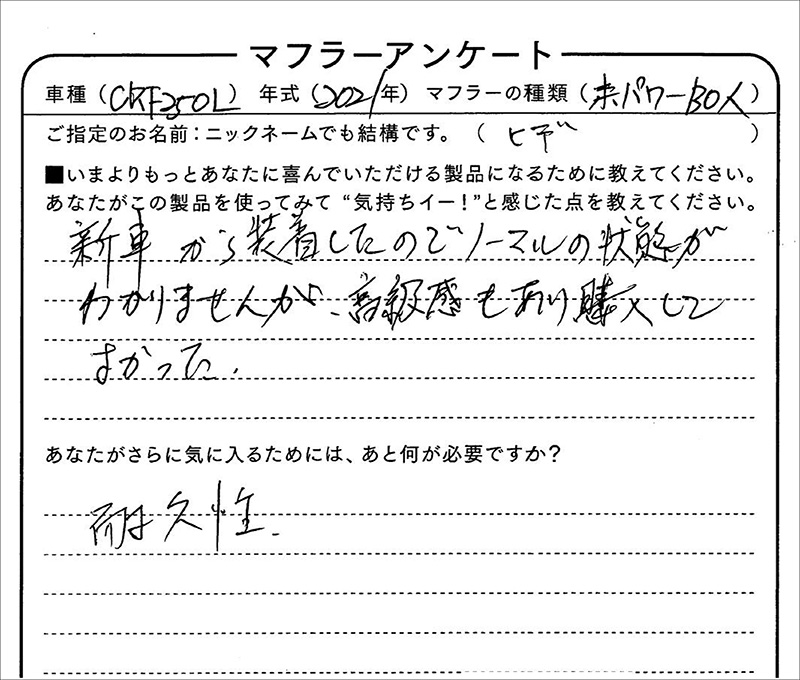 マフラーアンケート
車種（CRF250L）年式（2021年）マフラーの種類（末パワーBOX）
ご指定のお名前：ニックネームでも結構です。（ヒデ）
■いまよりもっとあなたに喜んでいただける製品になるために教えてください。
あなたがこの製品を使ってみて“気持ちイー！”と感じた点を教えてください。
新車から装着したのでノーマルの状態が
わかりませんが、高級感もあり購入して
よかった.
あなたがさらに気に入るためには、あと何が必要ですか？
耐久性.